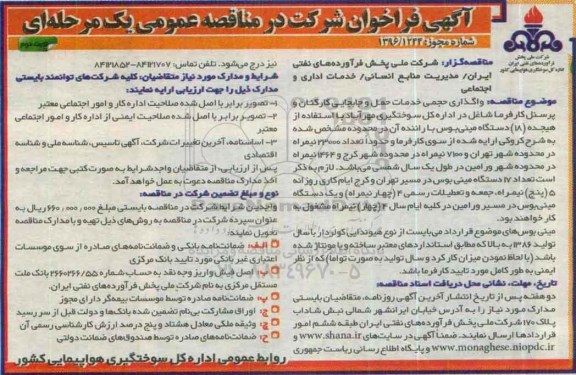 آگهی فراخوان شرکت در مناقصه عمومی یک مرحله‌ای
شماره مجوز: ۱۳۹۶/۱۲۴۴
نوبت دوم
شرکت ملی پخش
فرآورده‌های نفتی ایران
مناقصه‌گزار: شرکت ملی پخش فرآورده‌های نفتی
ایران/ مدیریت منابع انسانی/ خدمات اداری و
اجتماعی
موضوع مناقصه: واگذاری حجمی خدمات حمل و جابجایی کارکنان و
پرسنل کارفرما شاغل در اداره کل سوختگیری مهرآباد با استفاده از
هیجده (۱۸) دستگاه مینی‌بوس با راننده آن در محدوده مشخص شده
به شرح کروکی ارایه شده از سوی کارفرما و حدوداً تعداد ۲۳۰۰۰ نیمراه
در محدوده شهر تهران و ۷۱۰۰ نیمراه در محدوده شهر کرج و ۱۴۶۴ نیمراه
در محدوده شهر ورامین در طول یک سال شمسی می‌باشد. لازم به ذکر
است تعداد ۱۷ دستگاه مینی‌بوس در مسیر تهران و کرج ایام کاری روزانه
۵ (پنج) نیمراه، جمعه و تعطیلات رسمی ۴ (چهار نیمراه) و یک دستگاه
مینی‌بوس در مسیر ورامین در کلیه ایام سال ۴ (چهار) نیمراه مشغول به
کار خواهند بود.
مینی بوس‌های موضوع قرارداد می‌بایست از نوع هیوندایی کولردار با سال
تولید ۱۳۸۶ به بالا که مطابق استانداردهای معتبر ساخته و یا مونتاژ شده
باشد (با لحاظ نمودن میزان کارکرد و سال تولید به صورت توأما) که از نظر
ایمنی به طور کامل مورد تایید کارفرما باشد.
تاریخ، مهلت، نشانی محل دریافت اسناد مناقصه:
دو هفته پس از تاریخ انتشار آخرین آگهی روزنامه، متقاضیان بایستی
مدارک مورد نیاز را به آدرس خیابان ایرانشهر شمالی نبش شاداب
پلاک ۱۷۰ شرکت ملی پخش فرآورده‌های نفتی ایران طبقه ششم امور
قراردادها ارسال نمایند. ضمناً آگهی در سایت‌های www.shana.ir و
www.monaghese.niopdc.ir و پایگاه اطلاع رسانی ریاست جمهوری
نیز درج می‌شود. تلفن تماس: ۸۴۱۲۱۷۰۷-۸۴۱۲۱۸۵۲
شرایط و مدارک مورد نیاز متقاضیان: کلیه شرکت‌های توانمند بایستی
مدارک ذیل را جهت ارزیابی ارایه نمایند:
۱- تصویر برابر با اصل شده صلاحیت اداره کار و امور اجتماعی معتبر
۲- تصویر برابر با اصل شده صلاحیت ایمنی از اداره کار و امور اجتماعی
معتبر
۳- اساسنامه، آخرین تغییرات شرکت، آگهی تاسیس، شناسه ملی و شناسه
اقتصادی
پس از ارزیابی، از متقاضیان واجدشرایط به صورت کتبی جهت مراجعه و
اخذ مدارک مناقصه دعوت به عمل خواهد آمد.
نوع و مبلغ تضمین شرکت در مناقصه:
واجدین شرایط شرکت در مناقصه بایستی مبلغ ۶۶۰,۰۰۰,۰۰۰ ریال به
عنوان سپرده شرکت در مناقصه به روش‌های ذیل تهیه و با مدارک مناقصه
تحویل نمایند:
الف: ضمانت‌نامه بانکی و ضمانت‌نامه‌های صادره از سوی موسسات
اعتباری غیر بانکی مورد تایید بانک مرکزی
ب: اصل فیش واریز وجه نقد به حساب شماره ۲۶۶۰۲۶۶/۵۵ بانک ملت
مستقل مرکزی به نام شرکت ملی پخش فرآورده‌های نفتی ایران.
پ: ضمانت‌نامه صادره توسط موسسات بیمه‌گر دارای مجوز
ج: اوراق مشارکت بی‌نام تضمین شده بانک‌ها و دولت قبل از سر رسید
ح: وثیقه ملکی معادل هشتاد و پنج درصد ارزش کارشناسی رسمی آن
خ: ضمانت‌نامه‌های صادره توسط صندوق‌های ضمانت دولتی
روابط عمومی اداره کل سوختگیری هواپیمایی کشور